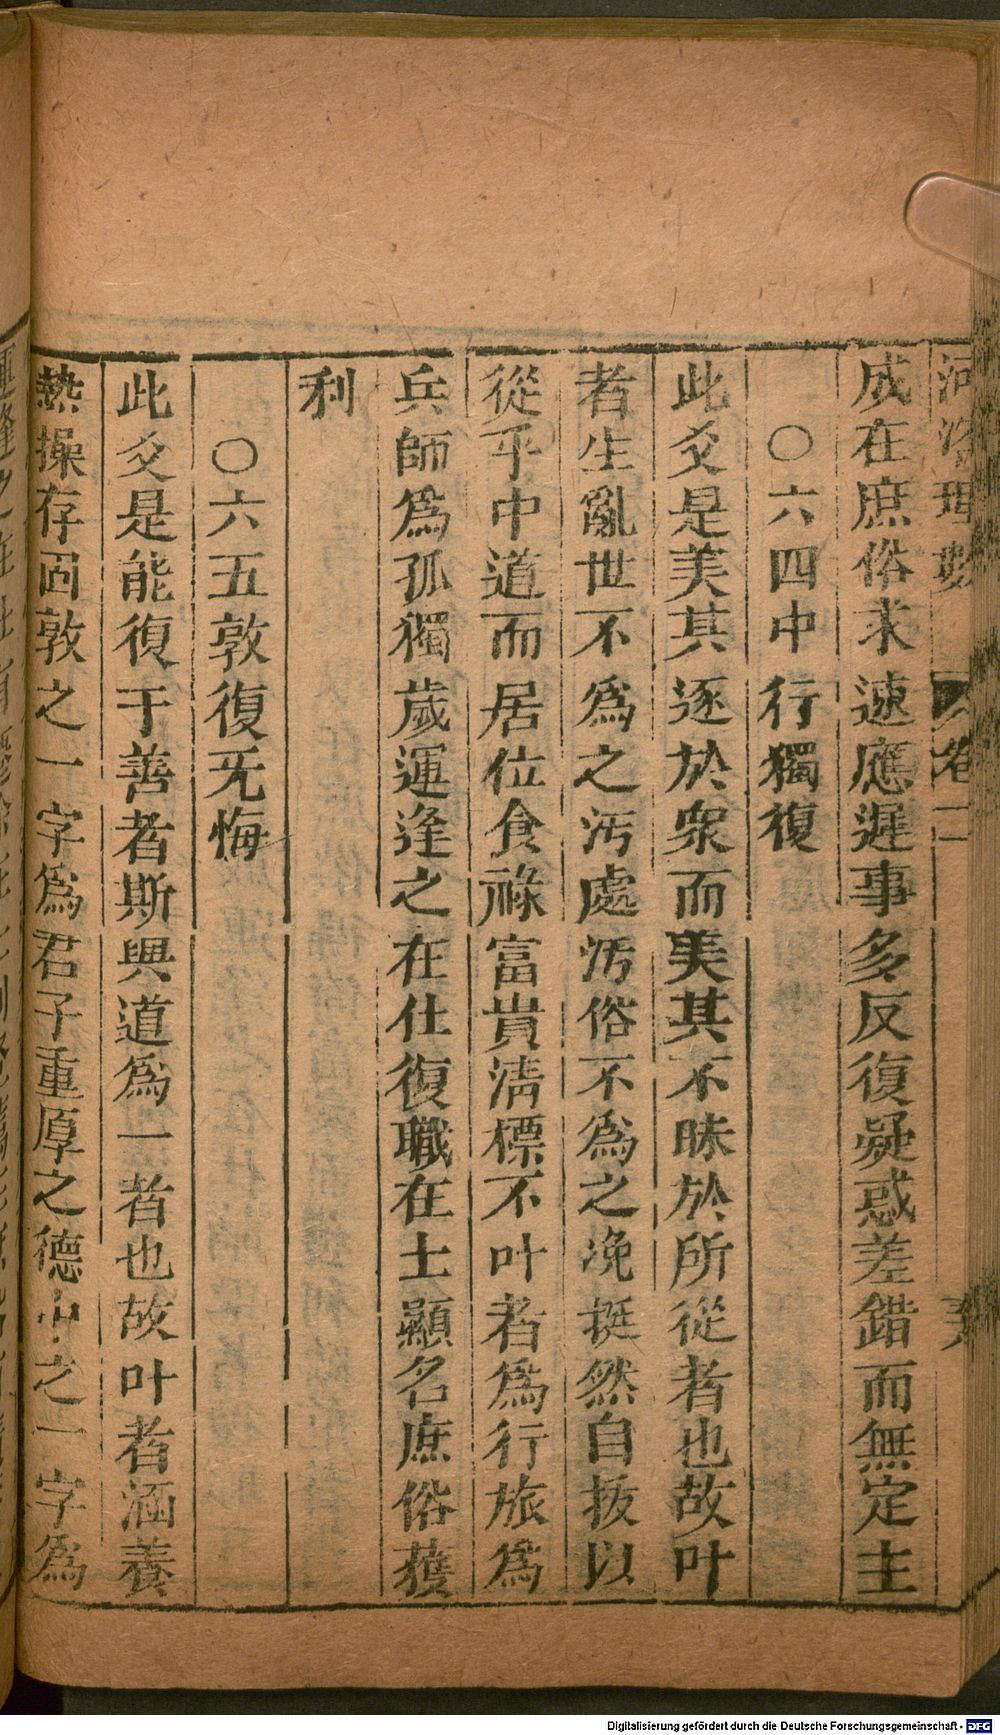 河洛理數 卷二
成在庶俗求速應遲事多反復疑惑差錯而無定主
○六四中行獨復
此爻是美其逐於衆而美其不昧於所從者也故叶
者生亂世不為之汚處汚俗不為之浼挺然自拔以
從乎中道而居位食祿富貴清標不叶者為行旅為
兵師為孤獨歲運逢之在仕復職在士顯名庶俗獲
利
○六五敦復旡悔
此爻是能復于善者斯與道為一者也故叶者涵養
熱操存固敦之一字為君子重厚之德中之一字為
Digitalisierung gefördert durch die Deutsche Forschungsgemeinschaft - DFG